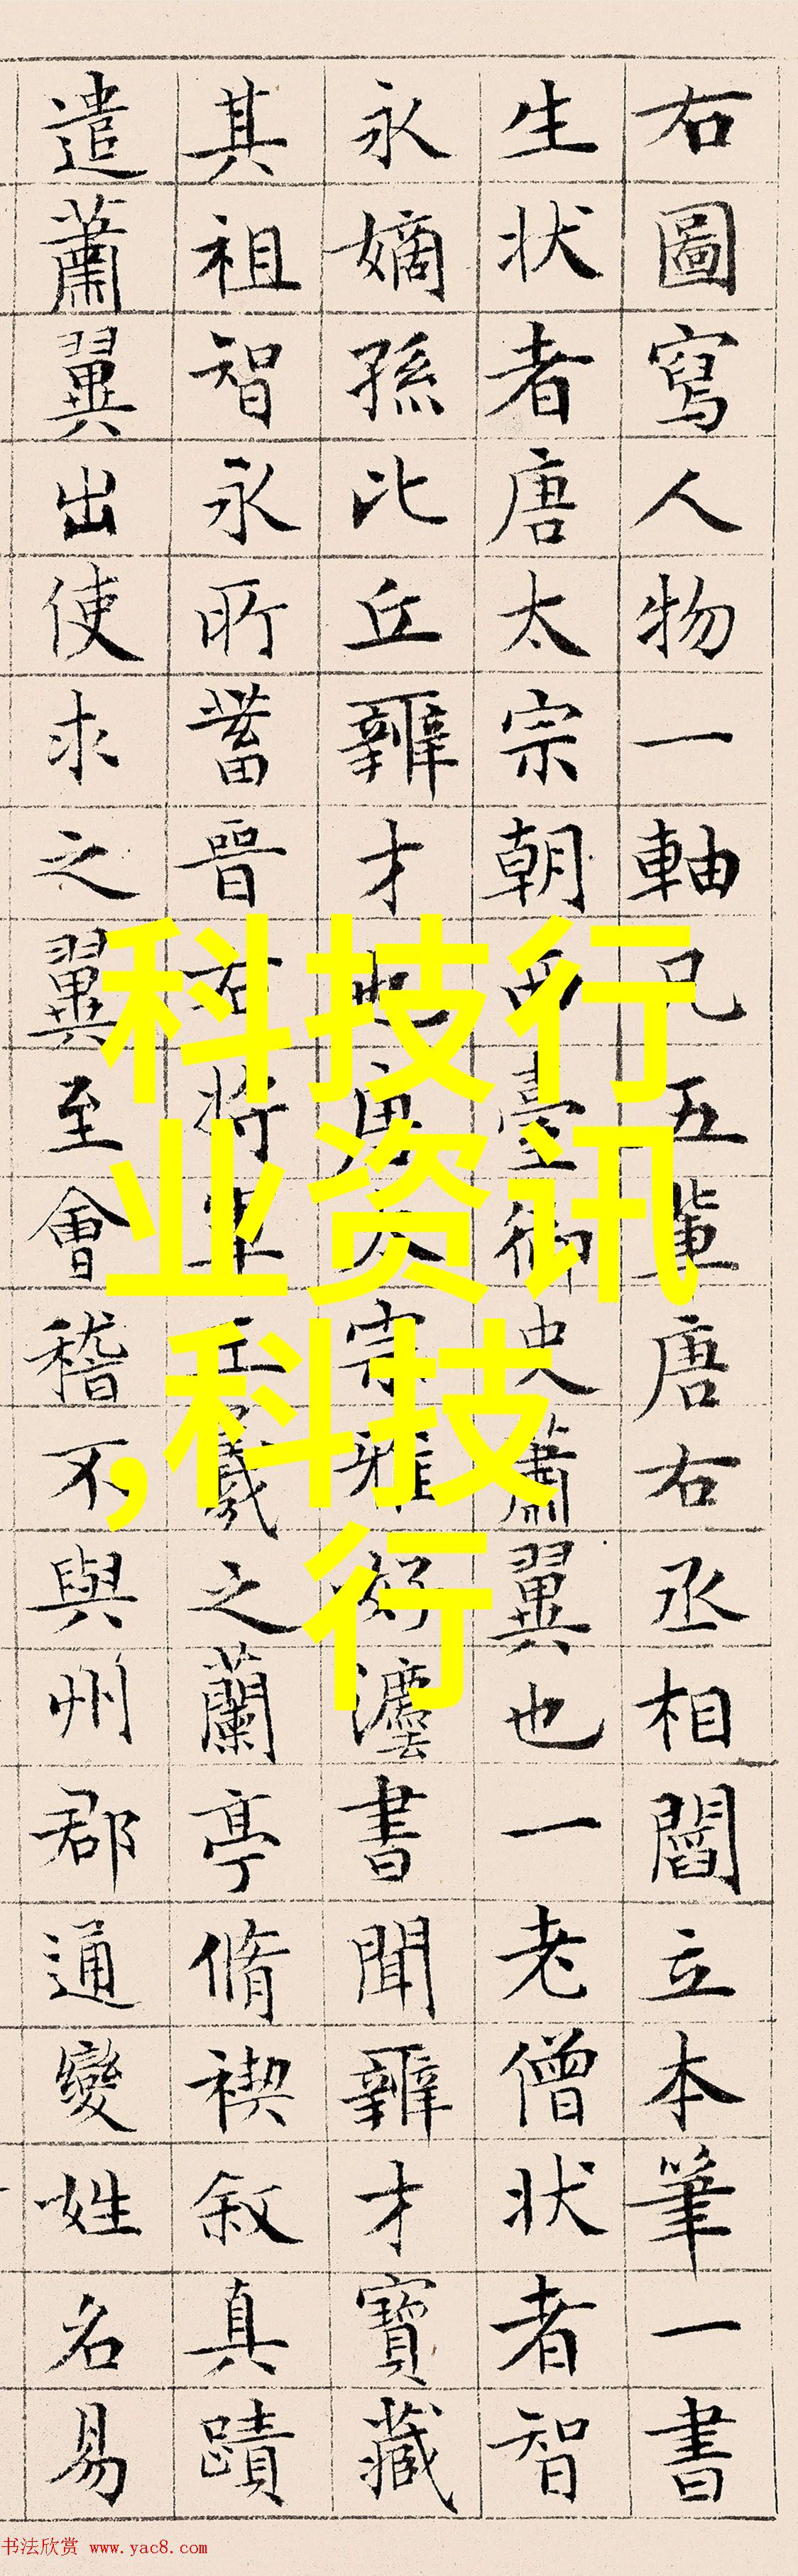 右圖寫人物一軸凡五輩唐右丞相閻立本筆一書
生状者唐太宗朝西臺御史蕭翼也一老僧状者智
永嫡孫比丘辯才也唐太宗雅好灋書聞辯才寶藏
其祖智永所蓄晉右將軍王羲之蘭亭脩禊叙真蹟
遣蕭翼出使求之翼至會稽不與州郡通變姓名易
科技行
业资讯
,科技
行
书法欣赏 www.yac8.com